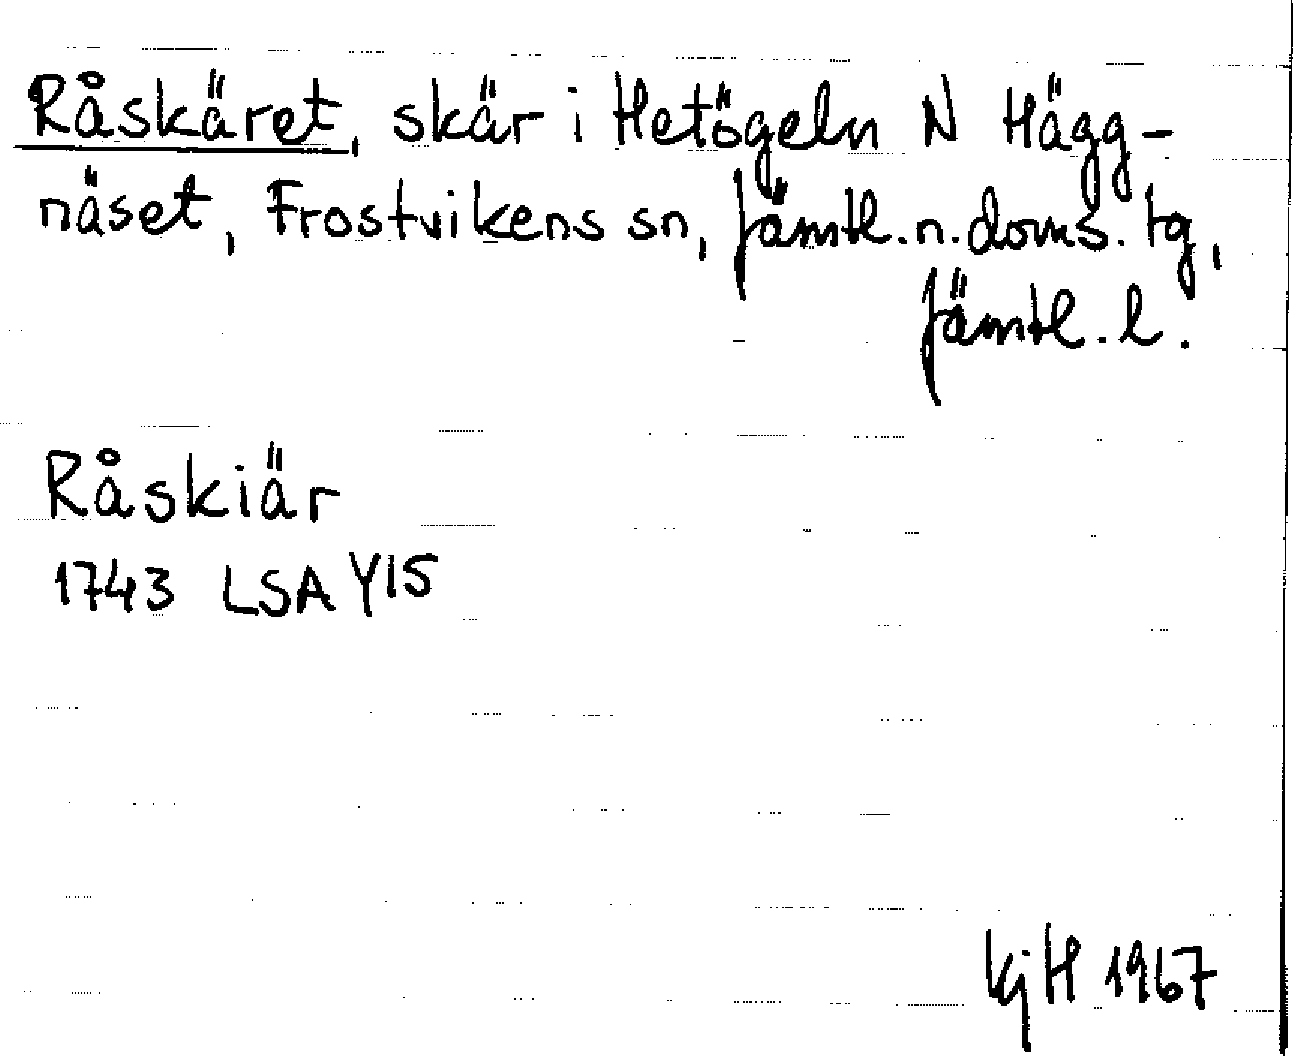 Råskäret, skär i Hetögeln N Hägg-
näset, Frostvikens sn, Jämtl. n. doms. tg,
Jämtl. l.
Råskiär
1743 LSA Y15
KjH 1967